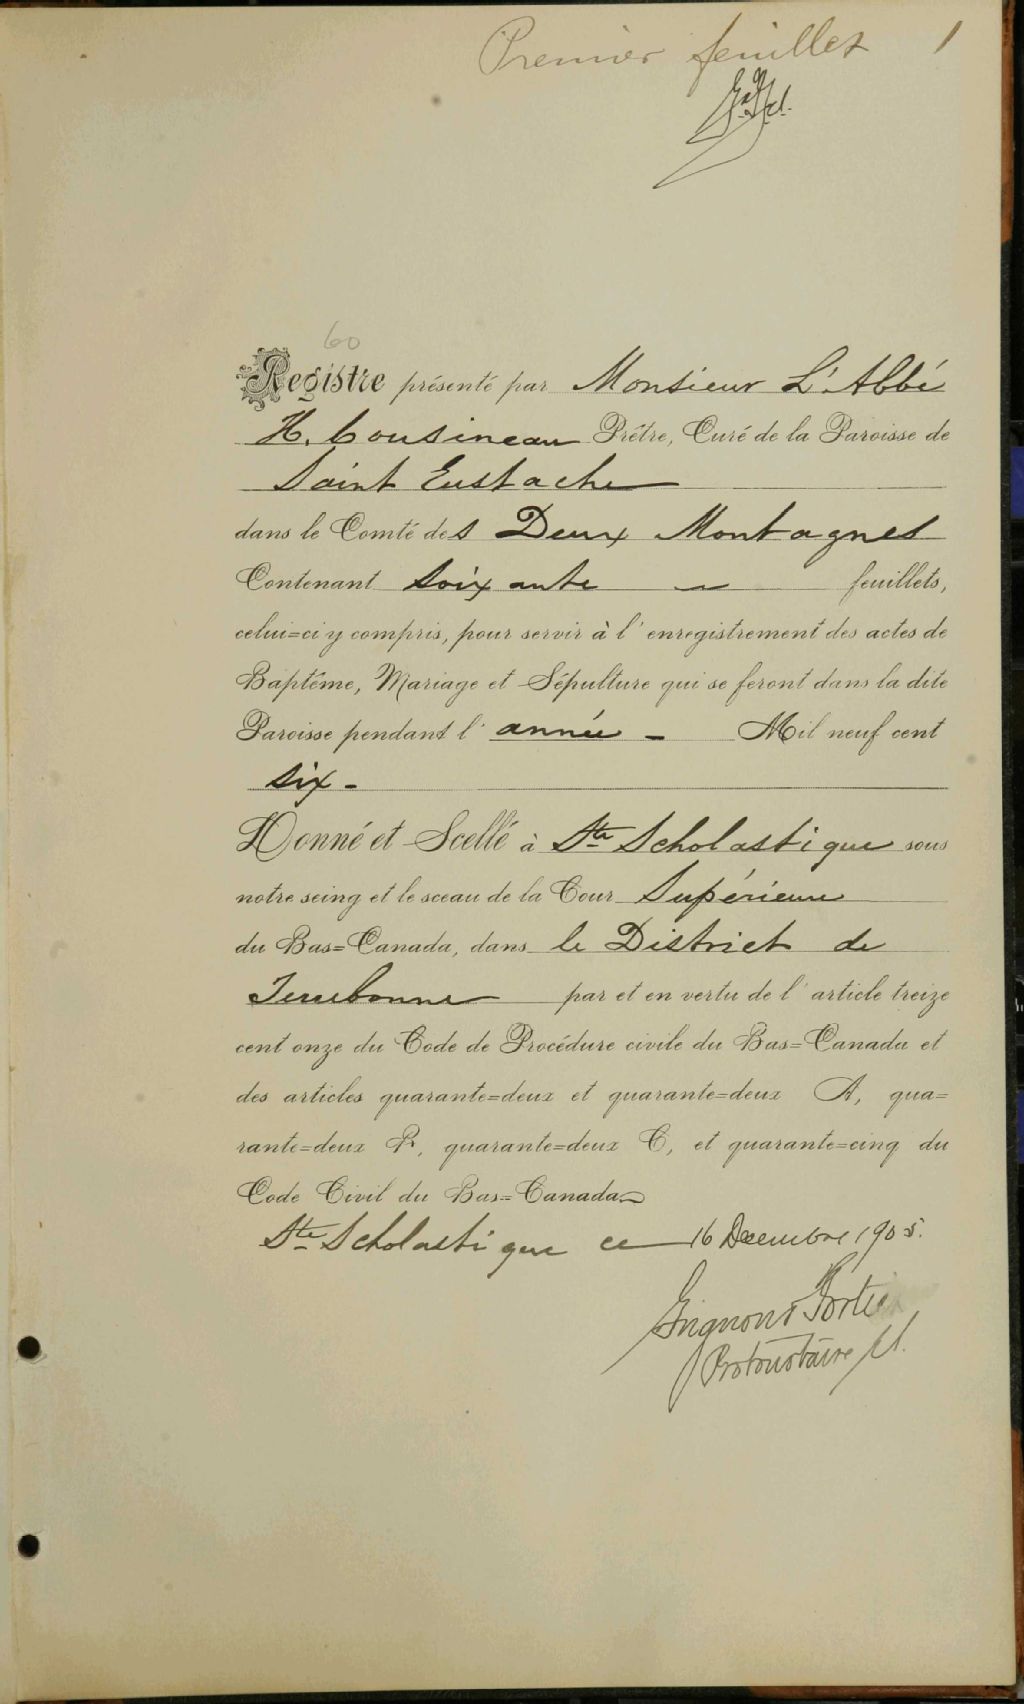 Premier feuillet 1
60
Registre présenté par Monsieur L'Abbé
H. Cousineau Prêtre, Curé de la Paroisse de
Saint Eustache
dans le Comté des Deux Montagnes
Contenant Soixante feuillets,
celui=ci y compris, pour servir à l'enregistrement des actes de
Baptême, Mariage et Sépulture qui se feront dans la dite
Paroisse pendant l'année - Mil neuf cent
six -
Donné et Scellé à Ste Scholastique sous
notre seing et le sceau de la Cour Supérieure
du Bas=Canada, dans le District de
Terrebonne par et en vertu de l'article treize
cent onze du Code de Procédure civile du Bas=Canada et
des articles quarante=deux et quarante=deux A, qua=
rante=deux B, quarante=deux C, et quarante=cinq du
Code Civil du Bas=Canada
Ste Scholastique ce 16 Decembre 1905.
Grignon & Fortier
Protonotaire